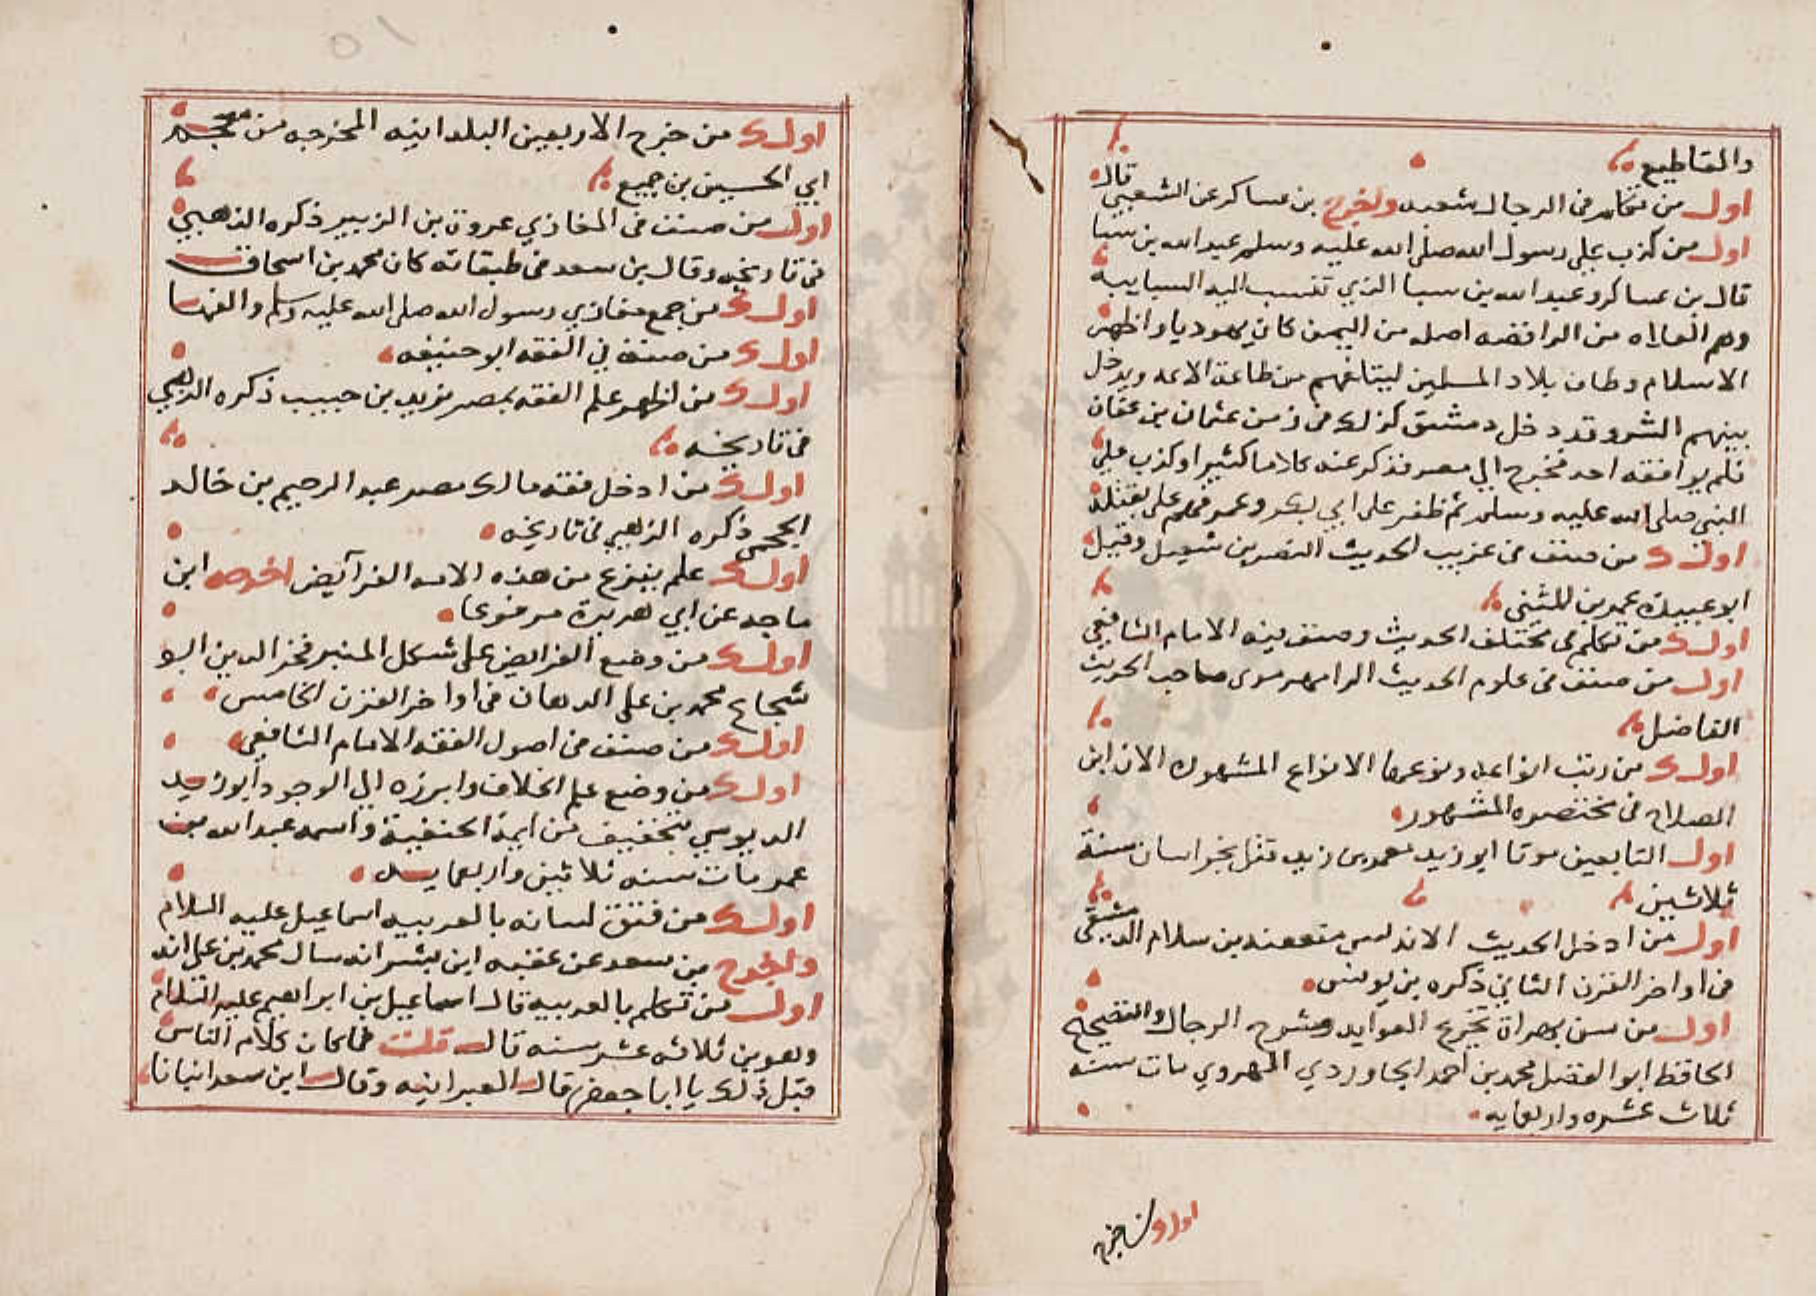 والمقاطيع
اول من تكلم في الرجال شعبه واخرج بن عساكر عن الشعبي قال
اول من كذب على رسول الله صلى الله عليه وسلم عبد الله بن سبا
قال بن عساكر وعبد الله بن سبا الذي تنسب اليه السبايية
وهم الغلاه من الرافضه اصله من اليمن كان يهوديا واظهر
الاسلام وطاف بلاد المسلمين ليتلفهم من طاعة الائمه ويدخل
بينهم الشر وقد دخل دمشق كذلك في زمن عثمان بن عفان
فلم يوافقه احد فخرج الي مصر فذكر عنه كلاما كثيرا وكذب علي
النبي صلى الله عليه وسلم ثم ظفر علي ابي بكر وعمر فهم علي بقتله
اول من صنف في غريب الحديث النضر بن شميل وقيل
ابو عبيدة عمير بن المثني
اول من تكلم في مختلف الحديث وصنف فيه الامام الشافعي
اول من صنف في علوم الحديث الرامهرموي صاحب الحديث
الفاضل
اول من رتب انواعه ونوعها الانواع المشهوره الان ابن
الصلاح في مختصره المشهور
اول التابعين موتا ابو زيد معمر بن زيد قتل بخراسان سنة
ثلاثين
اول من ادخل الحديث الاندلس صعصعه بن سلام الدمشقي
في اواخر القرن الثاني ذكره بن يونس
اول من سن بهراة تخرج الفوايد وشرح الرجال والتصحيح
الحافظ ابو الفضل محمد بن احمد الجاوردي الهروي مات سنه
ثلاث عشره واربعمايه
اول من خرج
اول من خرج الاربعين البلدانيه المخرجه من معجم
ابي الحسين بن جميع
اول من صنف في المغازي عروة بن الزبير ذكره الذهبي
في تاريخه وقال بن سعد في طبقاته كان محمد بن اسحاق
اول من جمع مغازي رسول الله صلى الله عليه وسلم والفها
اول من صنف في الفقه ابو حنيفه
اول من اظهر علم الفقه بمصر يزيد بن حبيب ذكره الذهبي
في تاريخه
اول من ادخل فقه مالك مصر عبد الرحيم بن خالد
الجمحي ذكره الذهبي في تاريخه
اول علم ينزع من هذه الامه الفرآيض اخرجه ابن
ماجه عن ابي هريرة مرفوعا
اول من وضع الفرايض على شكل المنبر فخر الدين ابو
شجاع محمد بن علي الدهان في اواخر القرن الخامس
اول من صنف في اصول الفقه الامام الشافعي
اول من وضع علم الخلاف وابرزه الي الوجود ابو زيد
الدبوسي بتخفيف من ايمة الحنفية واسمه عبد الله بن
عمر مات سنه ثلاثين واربعمايه
اول من فتق لسانه بالعربيه اسماعيل عليه السلام
واخرج بن سعد عن عقبه ابن بشر انه سال محمد بن علي انه
اول من تكلم بالعربيه قال اسماعيل بن ابراهيم عليه السلام
وهو بن ثلاثه عشر سنه قال قلت فما كان كلام الناس
قبل ذلك يا ابا جعفر قال العبرانيه وقال ابن سعد انبانا